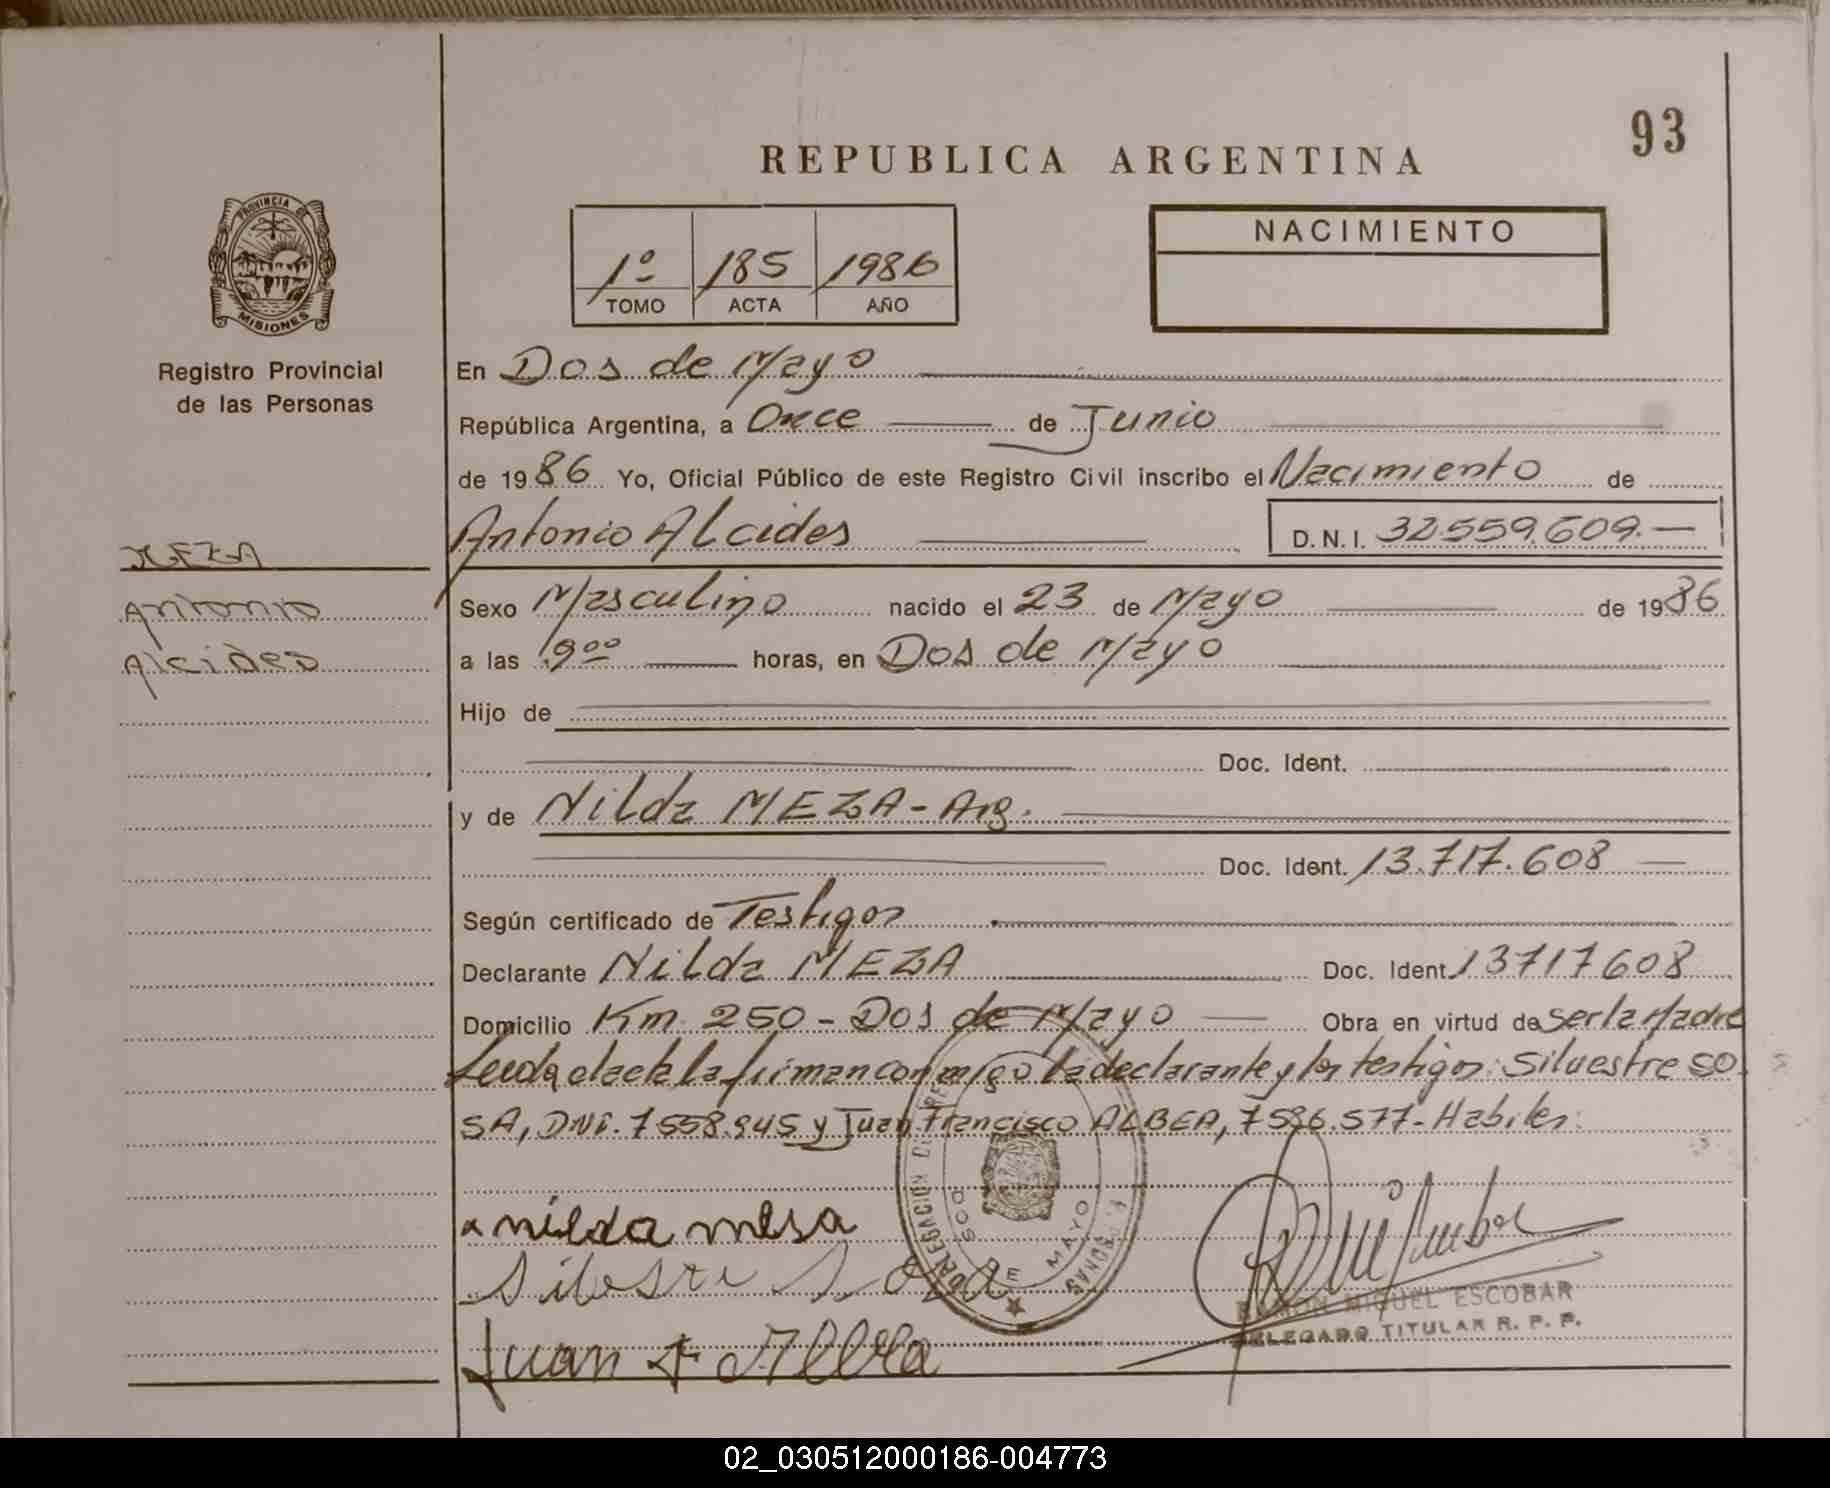 93
REPUBLICA ARGENTINA
PROVINCIA DE
MISIONES
Registro Provincial
de las Personas
1º 185 1986
TOMO ACTA AÑO
NACIMIENTO
En Dos de Mayo
República Argentina, a Once de Junio
de 1986 Yo, Oficial Público de este Registro Civil inscribo el Nacimiento de
Antonio Alcides D.N.I. 32.559.609.-
MEZA
Antonio
Alcides
Sexo Masculino nacido el 23 de Mayo de 1986
a las 19 00 horas, en Dos de Mayo
Hijo de
Doc. Ident.
y de Nilda MEZA - Arg.
Doc. Ident. 13.717.608
Según certificado de Testigos
Declarante Nilda MEZA Doc. Ident. 13717608
Domicilio Km 250 - Dos de Mayo Obra en virtud de ser la Madre
Leida el acta la firman conmigo la declarante y los testigos: Silvestre SO
SA, DNI. 7558.945 y Juan Francisco ALBEA, 7586.577- Habiles.
nilda mesa
Silvestre Sosa
Juan F Albea
DOS DE MAYO
RAMON MIGUEL ESCOBAR
DELEGADO TITULAR R. P. P.
02_030512000186-004773